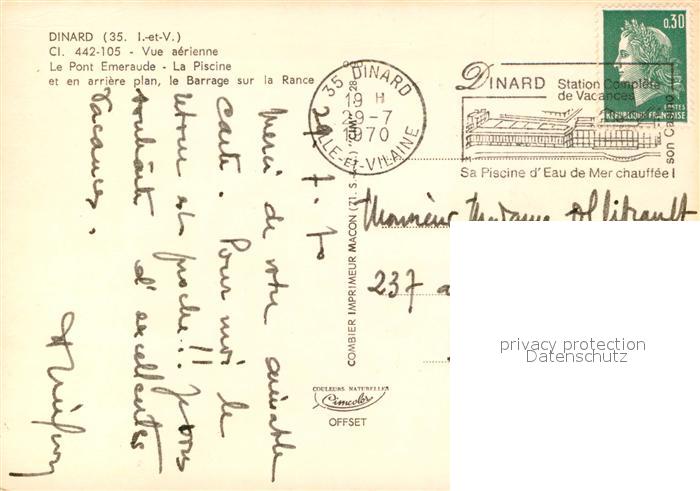 DINARD (35. I.-et-V.)
CI. 442-105 - Vue aérienne
Le Pont Emeraude - La Piscine
et en arrière plan, le Barrage sur la Rance
29. 7. 70
Merci de votre aimable
carte. Pour moi le
retour est proche!! Je vous
souhait d'excellentes
vacances.
COMBIER IMPRIMEUR MACON (71. S.-
COULEURS NATURELLES
Cimcolor
OFFSET
35 DINARD
19 H
29-7
1970
ILLE-ET-VILAINE
DINARD Station Complète
de Vacances
son Casino
Sa Piscine d'Eau de Mer chauffée !
0,30
REPUBLIQUE FRANCAISE
Monsieur Madame
237 a
privacy protection
Datenschutz